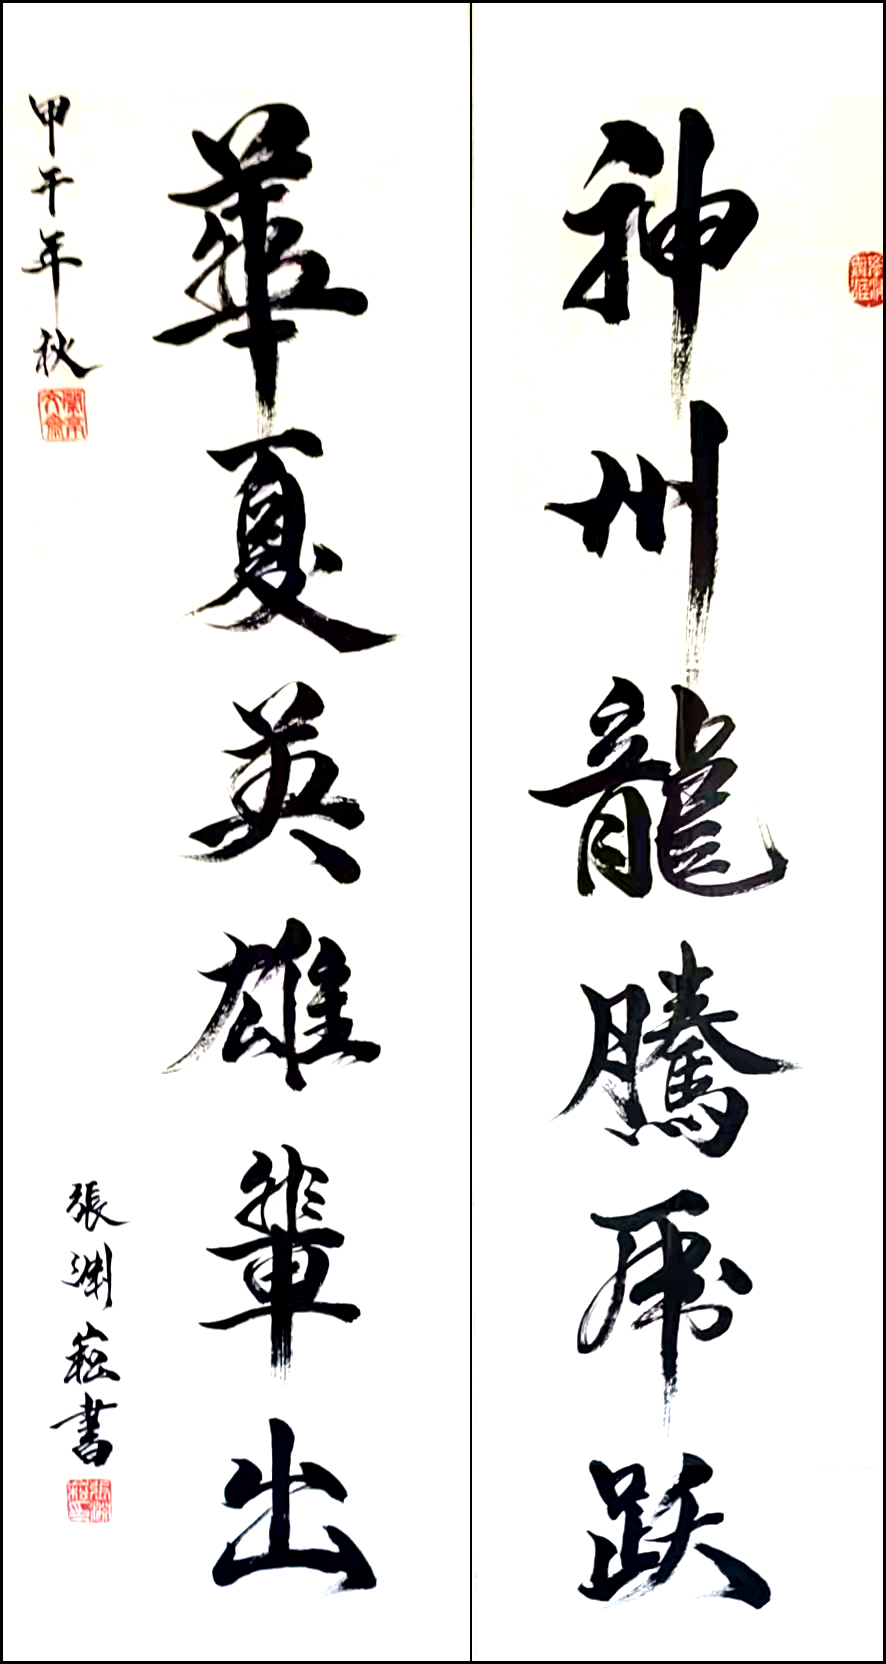 神州龍騰虎跃
華夏英雄輩出
甲午年秋
張渊崧書